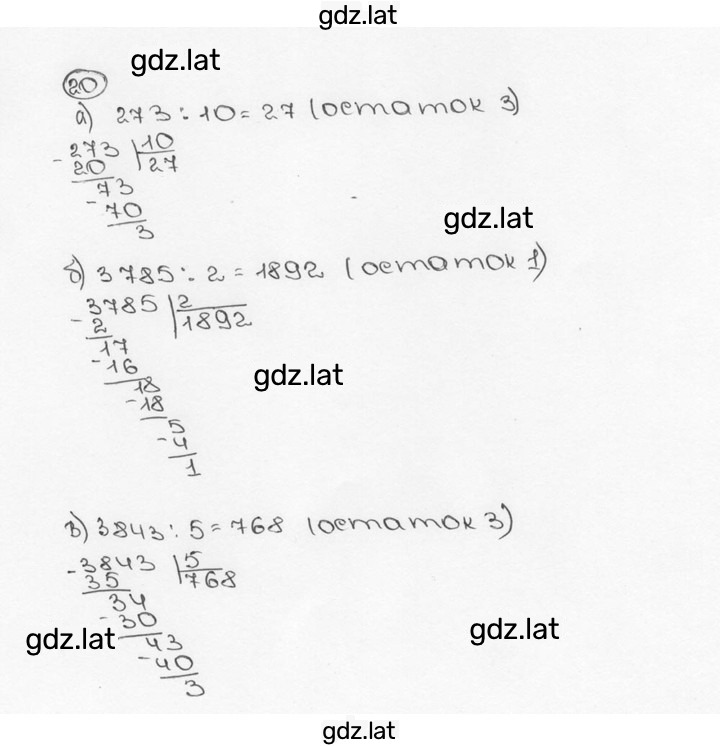 gdz.lat
gdz.lat
20
а) 273 : 10 = 27 (остаток 3)
- 273 | 10
20 | 27
73
- 70
3
gdz.lat
б) 3785 : 2 = 1892 (остаток 1)
- 3785 | 2
2 | 1892
17
- 16
18
- 18
5
- 4
1
gdz.lat
в) 3843 : 5 = 768 (остаток 3)
- 3843 | 5
35 | 768
34
- 30
43
- 40
3
gdz.lat
gdz.lat
gdz.lat